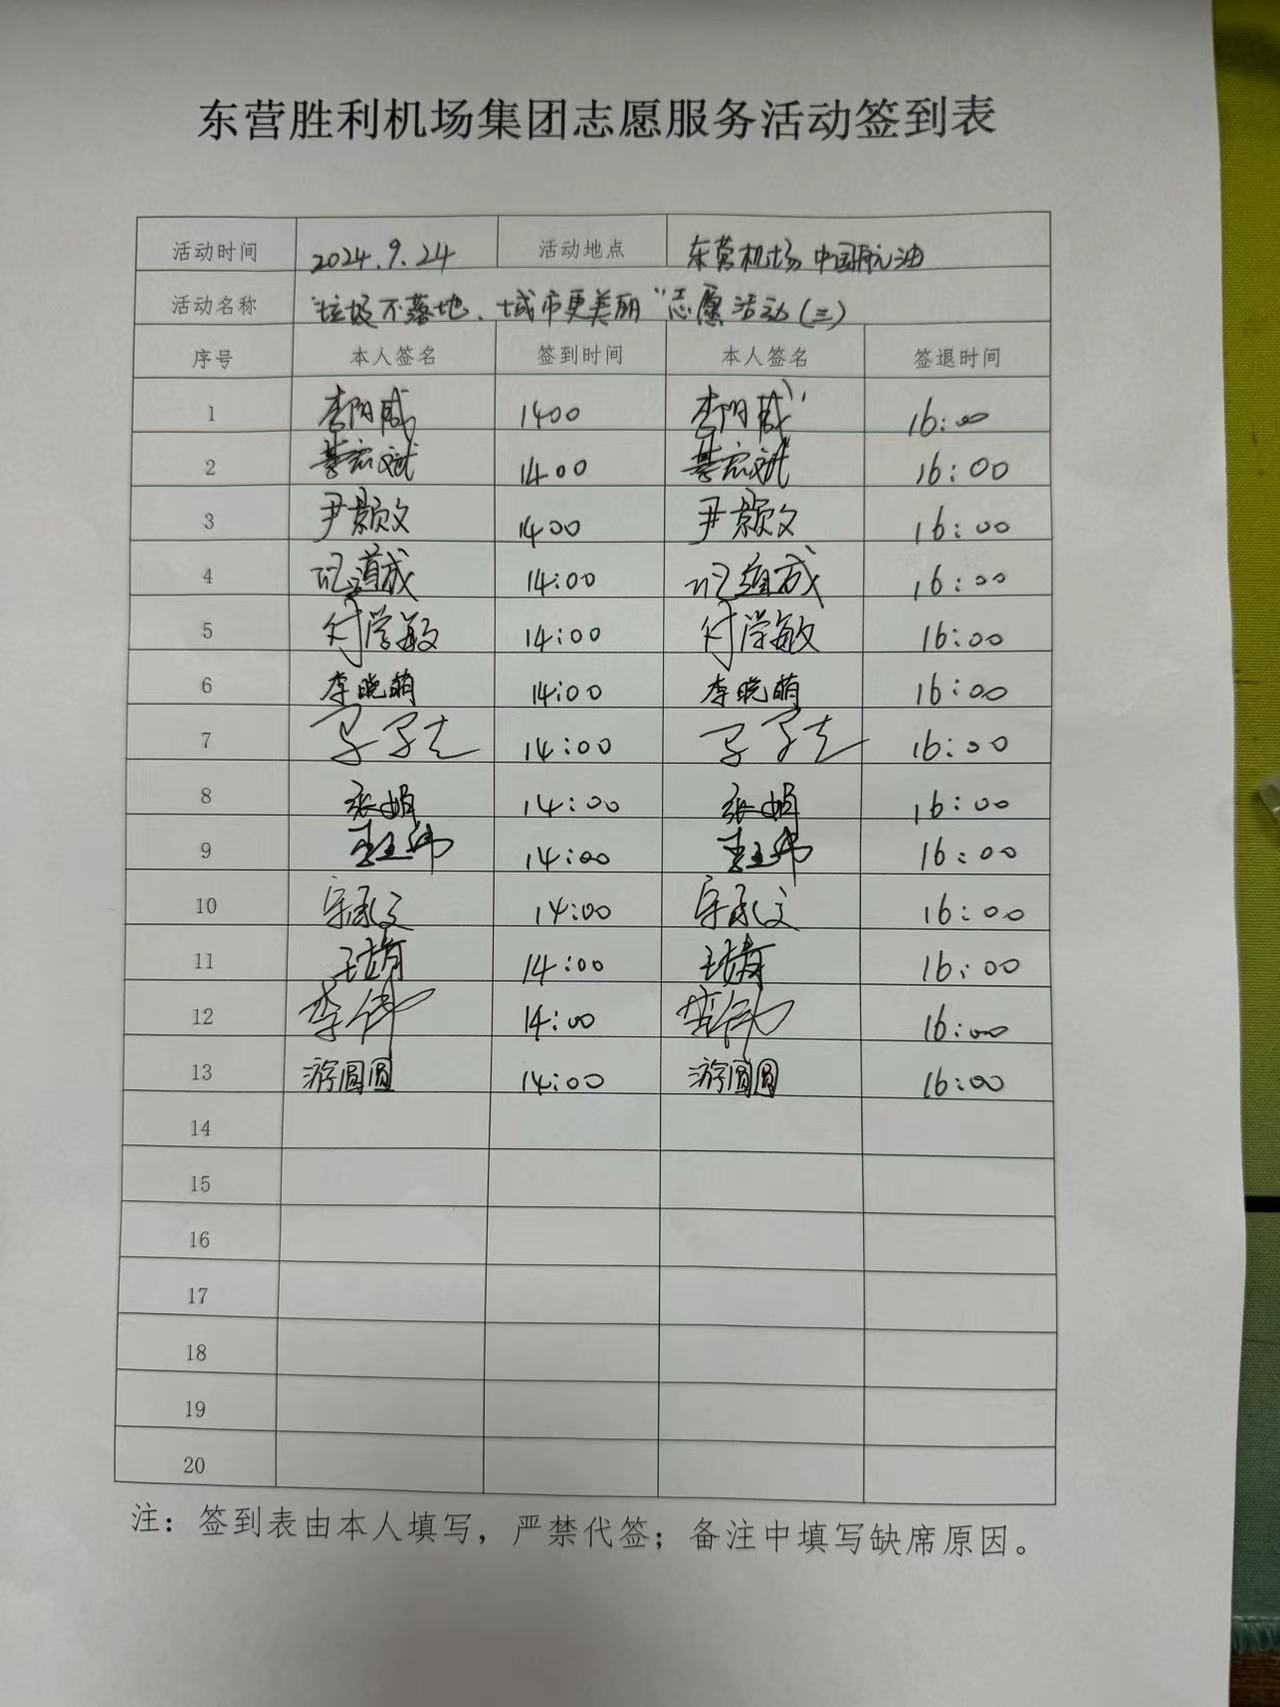 东营胜利机场集团志愿服务活动签到表
活动时间 2024.9.24 活动地点 东营机场 中国航油
活动名称 "垃圾不落地、城市更美丽"志愿活动(三)
序号 本人签名 签到时间 本人签名 签退时间
1 李阳威 1400 李阳威 16:00
2 14:00 16:00
3 尹颢文 1400 尹颢文 16:00
4 14:00 16:00
5 付学敏 14:00 付学敏 16:00
6 李晓萌 14:00 李晓萌 16:00
7 14:00 16:00
8 张娟 14:00 张娟 16:00
9 14:00 16:00
10 宋承文 14:00 宋承文 16:00
11 王婧 14:00 王婧 16:00
12 李伟 14:00 李伟 16:00
13 游圆圆 14:00 游圆圆 16:00
14
15
16
17
18
19
20
注：签到表由本人填写，严禁代签；备注中填写缺席原因。